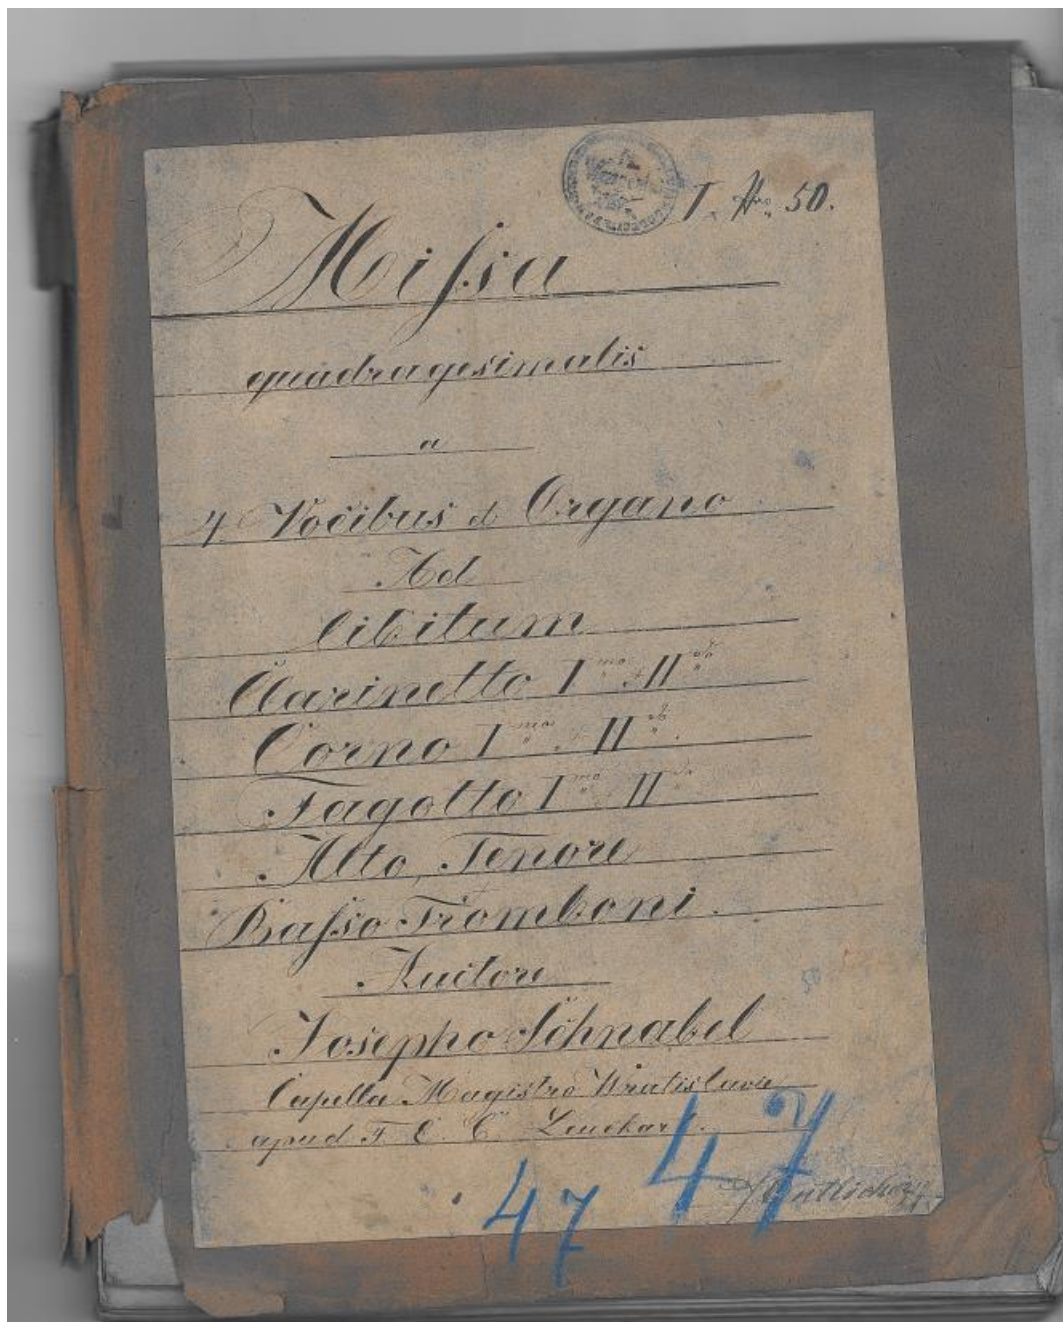 I. Nro 50.
Missa
quadragesimalis
a
4 Vocibus et Organo
Ad
libitum
Clarinetto I mo et II do
Corno I mo et II do
Fagotto I mo et II do
Alto, Tenore
Basso Tromboni.
Auctore
Josepho Schnabel
Capellæ Magistro Wratislaviæ
apud F. E. C. Leuckart.
47
47